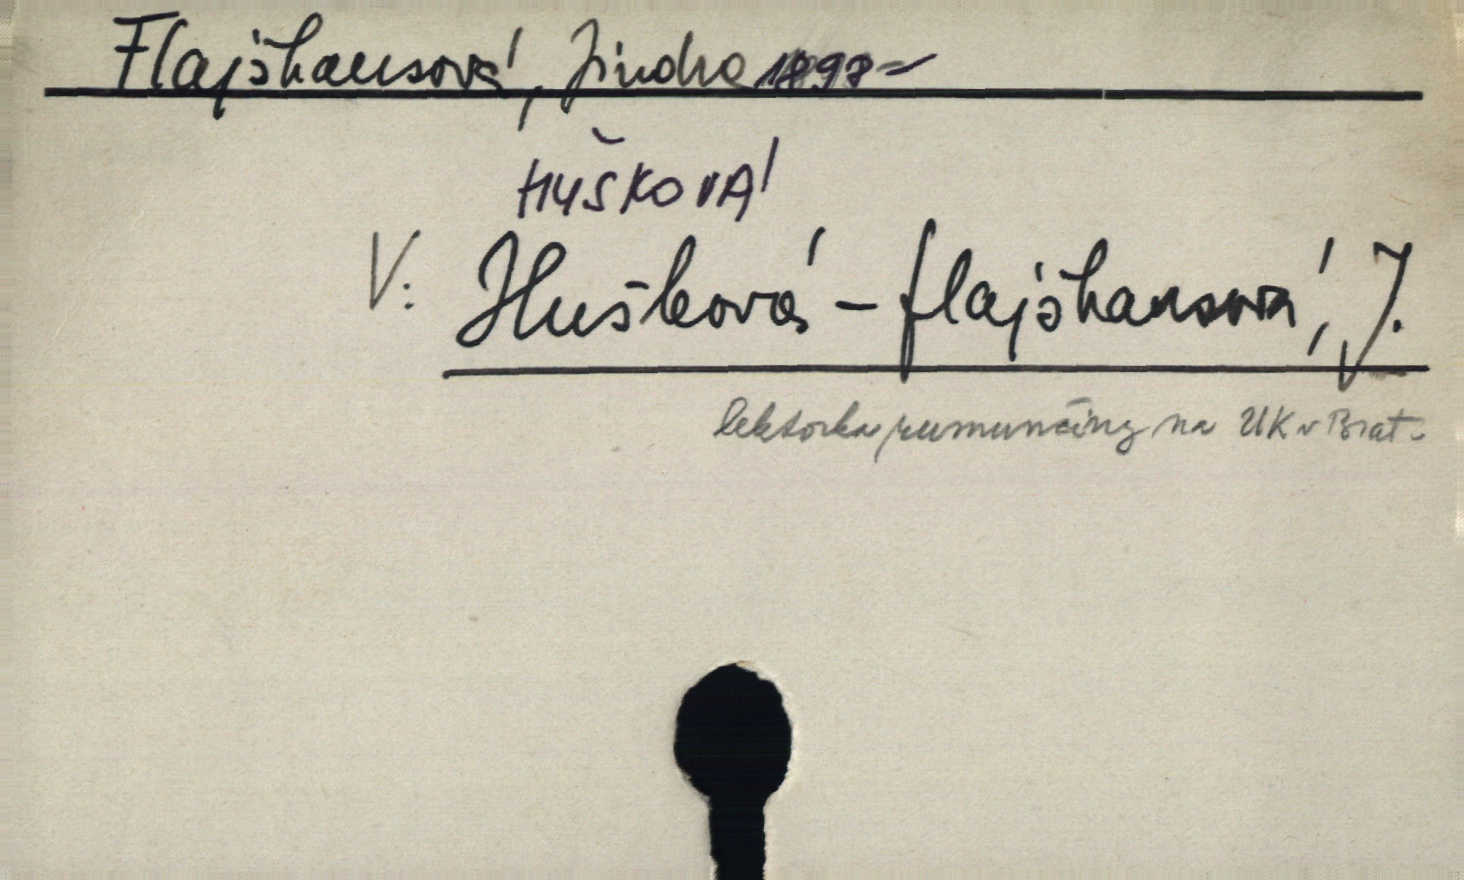 Flajšhansová, Jindra 1898-
HUŠKOVÁ
V: Hušková-flajšhansová, J.
lektorka rumunčiny na UK v Brat.